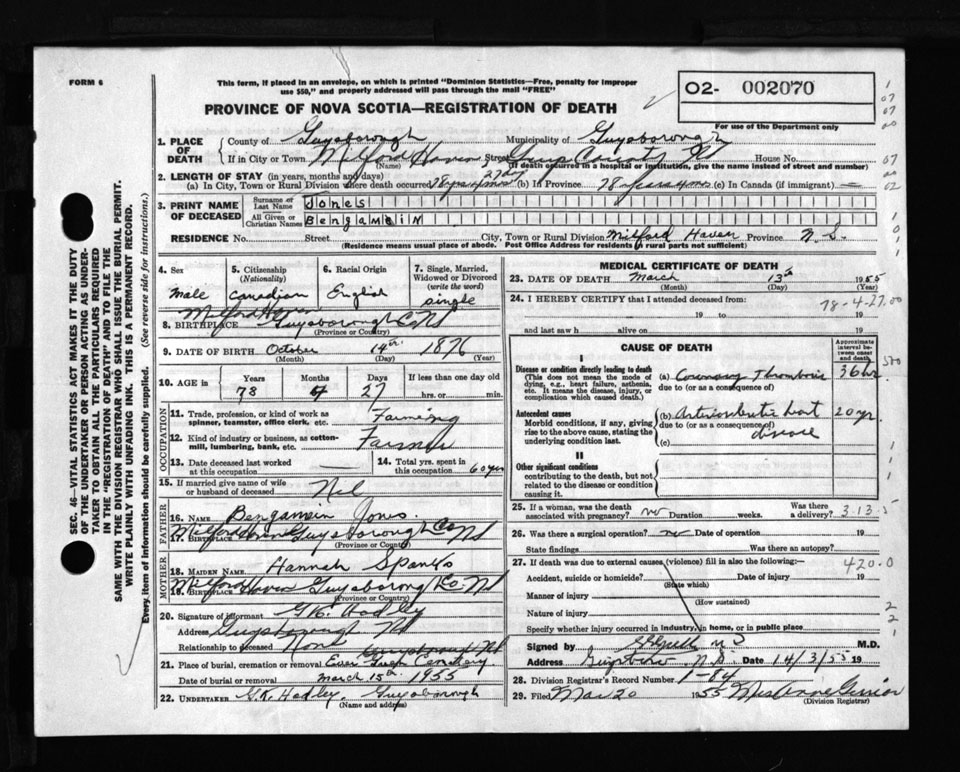 FORM 6
This form, if placed in an envelope, on which is printed "Dominion Statistics—Free, penalty for improper
use $50," and properly addressed will pass through the mail "FREE"
PROVINCE OF NOVA SCOTIA—REGISTRATION OF DEATH
O2- 002070
For use of the Department only
1. PLACE OF DEATH
County of Guysborough Municipality of Guysborough
If in City or Town Milford Haven Street Guys County N House No.
(Name) (If death occurred in a hospital or institution, give the name instead of street and number)
2. LENGTH OF STAY (in years, months and days)
(a) In City, Town or Rural Division where death occurred 78 yrs 4 mos 27 day (b) In Province 78 years 4 mos (c) In Canada (if immigrant) —
3. PRINT NAME OF DECEASED
Surname or Last Name Jones
All Given or Christian Names Bengamein
RESIDENCE No. Street City, Town or Rural Division Milford Haven Province N.S.
(Residence means usual place of abode. Post Office Address for residents in rural parts not sufficient)
4. Sex male
5. Citizenship (Nationality) Canadian
6. Racial Origin English
7. Single, Married, Widowed or Divorced (write the word) single
8. BIRTHPLACE Milford Haven Guysborough Co NS
(Province or Country)
9. DATE OF BIRTH October 14th 1876
(Month) (Day) (Year)
10. AGE in Years 78 Months 4 Days 27 If less than one day old hrs. or min.
OCCUPATION
11. Trade, profession, or kind of work as spinner, teamster, office clerk, etc. Farming
12. Kind of industry or business, as cotton-mill, lumbering, bank, etc. Farmer
13. Date deceased last worked at this occupation —
14. Total yrs. spent in this occupation 60 yrs
15. If married give name of wife or husband of deceased Nil
FATHER
16. NAME Bengamein Jones.
17. Birthplace Milford Haven Guysborough Co NS
(Province or Country)
MOTHER
18. MAIDEN NAME Hannah Spanks
19. BIRTHPLACE Milford Haven Guysborough Co. NS
(Province or Country)
20. Signature of informant G.K. Hadley
Address Guysborough NS
Relationship to deceased None
21. Place of burial, cremation or removal Ever Green Cemetery Guysborough NS
Date of burial, cremation or removal March 15th 1955
22. UNDERTAKER G.K. Hadley. Guysborough
(Name and address)
MEDICAL CERTIFICATE OF DEATH
23. DATE OF DEATH March 13th 1955
(Month) (Day)
24. I HEREBY CERTIFY that I attended deceased from:
78-4-27.00
19 to 19
and last saw h alive on 19
CAUSE OF DEATH
Approximate interval between onset and death
Disease or condition directly leading to death
(This does not mean the mode of dying, e.g., heart failure, asthenia, etc. It means the disease, injury, or complication which caused death.)
(a) Coronary Thrombosis 36 hr.
due to (or as a consequence of)
Antecedent causes
Morbid conditions, if any, giving rise to the above cause, stating the underlying condition last.
(b) Arteriosclerotic heart disease 20 yr.
due to (or as a consequence of)
(c)
II
Other significant conditions
contributing to the death, but not related to the disease or condition causing it.
25. If a woman, was the death associated with pregnancy? no Duration weeks. Was there a delivery? 313.5
26. Was there a surgical operation? no Date of operation 19
State findings Was there an autopsy?
27. If death was due to external causes (violence) fill in also the following:— 420.0
Accident, suicide or homicide? Date of injury 19
(State which)
Manner of injury
(How sustained)
Nature of injury
Specify whether injury occurred in industry, in home, or in public place
Signed by M.D.
Address Guysboro N.S. Date 14/3/55 19
28. Division Registrar's Record Number 1-84
29. Filed Mar 20 1955
(Division Registrar)
SEC. 46—VITAL STATISTICS ACT MAKES IT THE DUTY
OF THE UNDERTAKER OR PERSON ACTING AS UNDERTAKER TO OBTAIN ALL THE PARTICULARS REQUIRED
IN THE "REGISTRATION OF DEATH" AND TO FILE THE
SAME WITH THE DIVISION REGISTRAR WHO SHALL ISSUE THE BURIAL PERMIT.
WRITE PLAINLY WITH UNFADING INK. THIS IS A PERMANENT RECORD.
Every item of information should be carefully supplied. (See reverse side for instructions.)